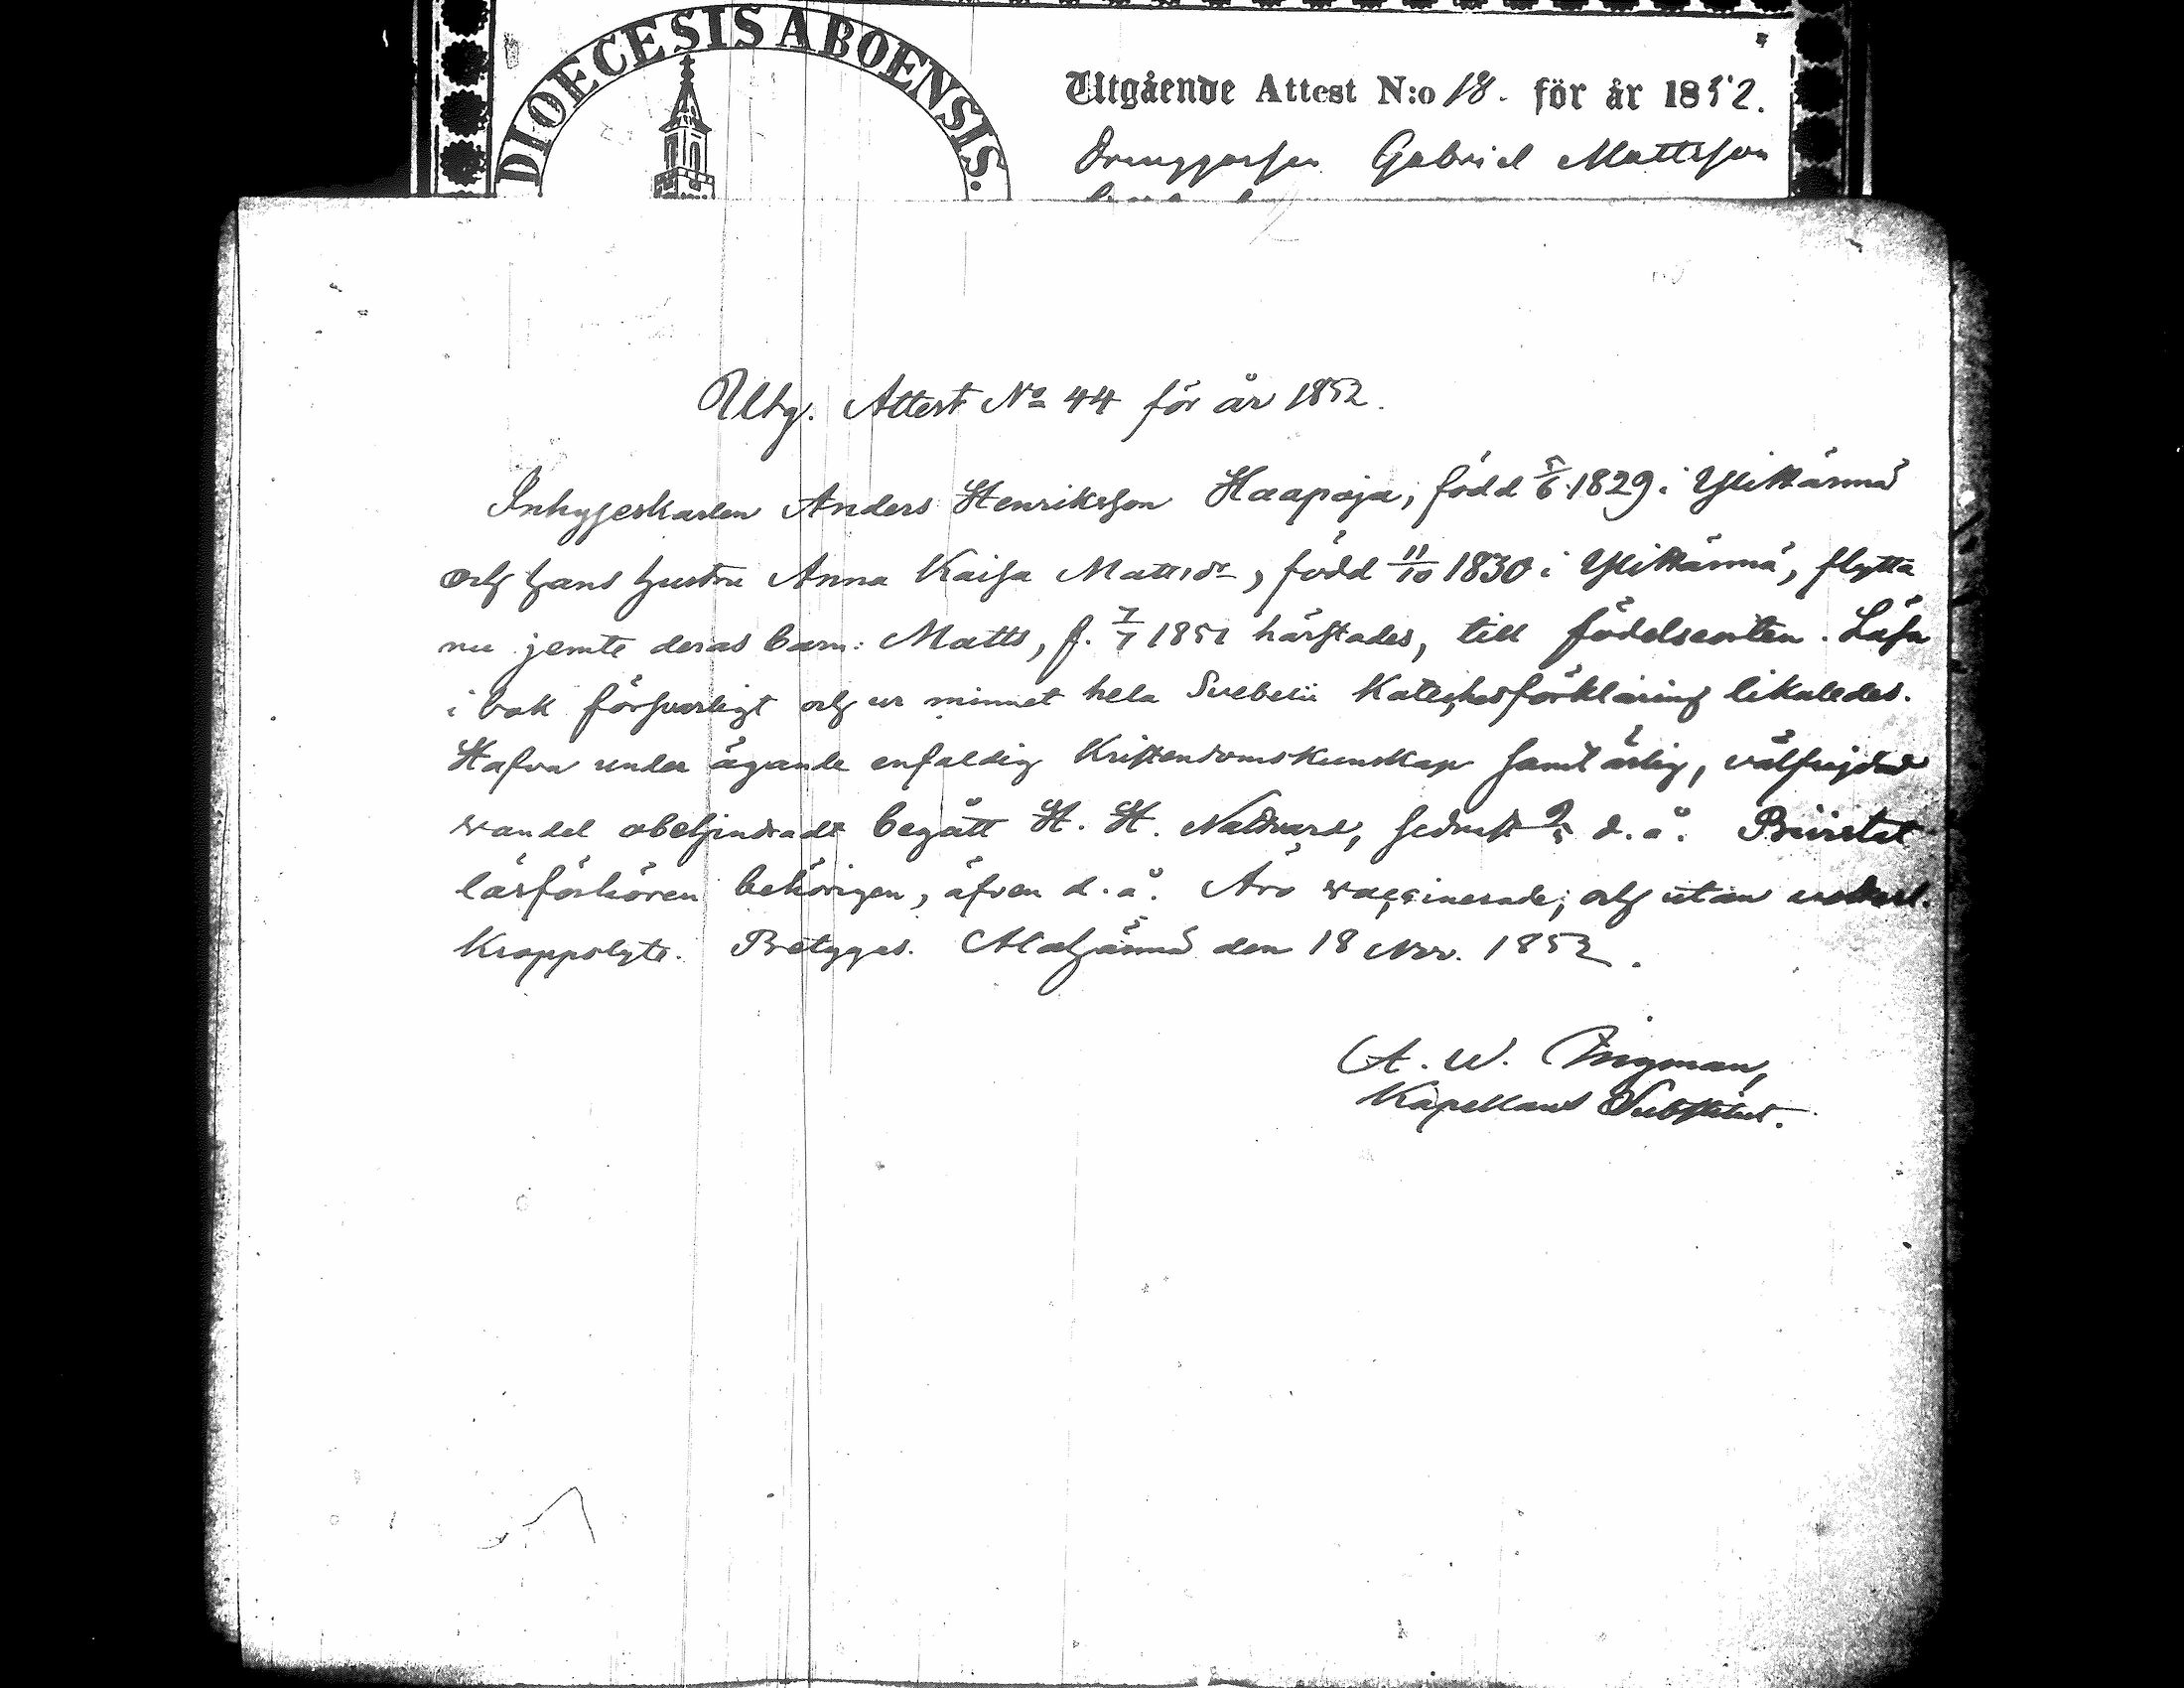 DIOECESIS ABOENSIS.
Utgående Attest N:o 18. för år 1852.
Gabriel Mattsson
Utg. Attest No 44 för år 1852.
Inhyseskarlen Anders Henriksson Haapoja, född 5/6 1829 i Ylikärmä
och hans hustru Anna Kaisa Mattsdr, född 11/10 1830 i Ylikärmä, flytta
nu jemte deras barn: Matts, f. 7/7 1851 härstädes, till födelseorten. Läsa
i bok försvarligt och ur minnet hela Svebelii Kateches förklaring likaledes.
Hafva under ägande enfaldig Kristendomskunskap samt ärlig, välfrejdad
vandel obehindradt begått H. H. Nattvard, sednast d. å. Bivistat
läsförhören behörigen, äfven d. å. Äro vaccinerade, och utan
Kroppslyte. Betygges. Alahärmä den 18 Nov. 1852.
A. W. Ingman,
Kapellans Substitut.